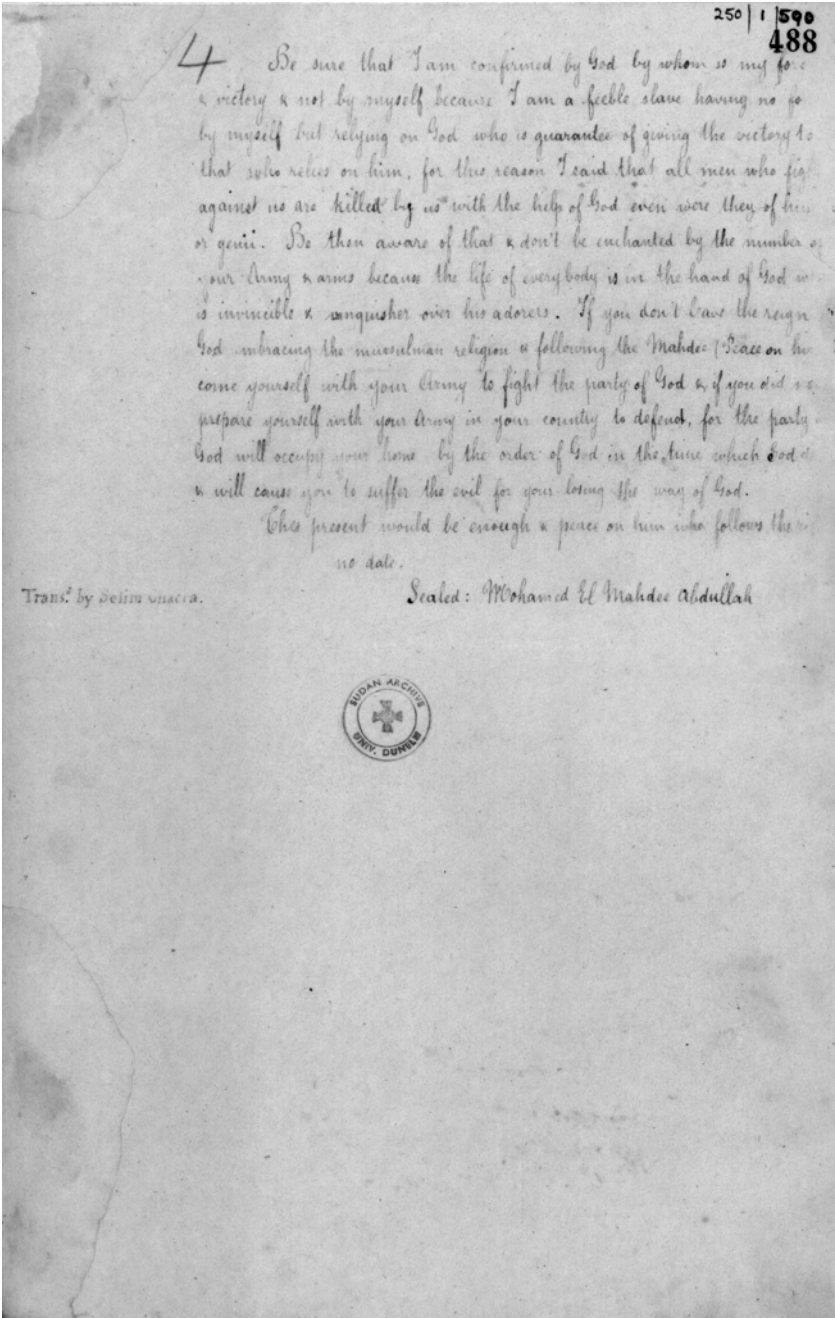 250 | 1 | 590
488
4
Be sure that I am confirmed by God by whom is my
& victory & not by myself because I am a feeble slave having no
by myself but relying on God who is guarantee of giving the victory to
that who relies on him, for this reason I said that all men who
against us are killed by us with the help of God even were they of
or genii. Be then aware of that & don't be enchanted by the number
your Army & arms because the life of everybody is in the hand of God
is invincible & vanquisher over his adorers. If you don't leave the reign
God embracing the mussulman religion & following the Mahdee (Peace on
come yourself with your Army to fight the party of God & if you did
prepare yourself with your Army in your country to defend, for the party
God will occupy your home by the order of God in the time which God
& will cause you to suffer the evil for your losing the way of God.
This present would be enough & peace on him who follows the
no date.
Trans.d by Selim Chacra.
Sealed: Mohamed El Mahdee Abdullah
SUDAN ARCHIVE
UNIV. DUNELM